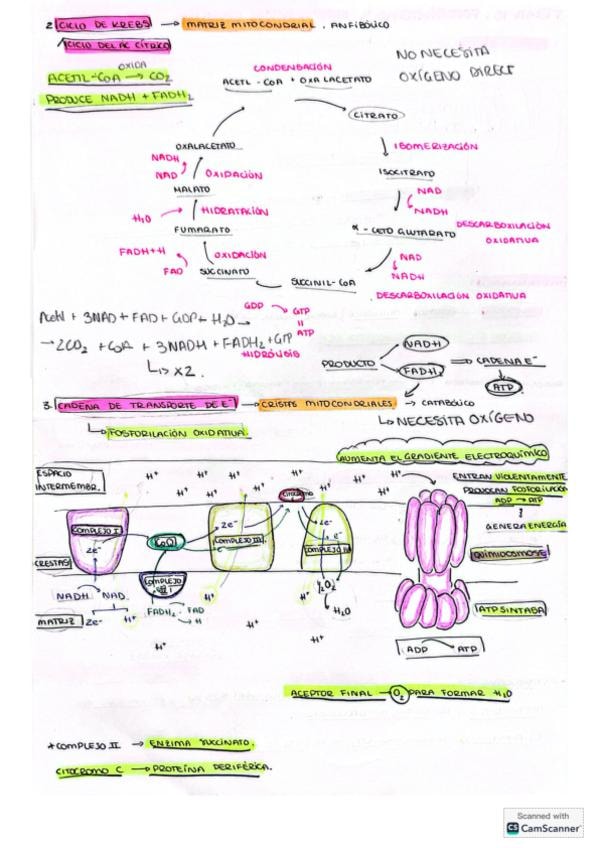 2. CICLO DE KREBS → MATRIZ MITOCONDRIAL. ANFIBÓLICO
/CICLO DEL AC CÍTRICO
OXIDA
ACETIL-COA → CO₂
PRODUCE NADH + FADH₂
NO NECESITA
OXÍGENO DIRECT
CONDENSACIÓN
ACETIL-COA + OXALACETATO
CITRATO
ISOMERIZACIÓN
ISOCITRATO
NAD
NADH
α-CETO GLUTARATO
DESCARBOXILACIÓN
OXIDATIVA
NAD
NADH
DESCARBOXILACIÓN OXIDATIVA
SUCCINIL-COA
GDP → GTP
=
ATP
HIDRÓLISIS
SUCCINATO
OXIDACIÓN
FAD
FADH+H
FUMARATO
HIDRATACIÓN
H₂O
MALATO
OXIDACIÓN
NAD
NADH
OXALACETATO
Acetil + 3NAD + FAD + GDP + H₂O →
→ 2CO₂ + CoA + 3NADH + FADH₂ + GTP
↳ x2.
PRODUCTO
NADH
FADH₂
⇒ CADENA E⁻
ATP
3. CADENA DE TRANSPORTE DE E⁻ → CRISTAS MITOCONDRIALES → CATABÓLICO
↳ FOSFORILACIÓN OXIDATIVA
↳ NECESITA OXÍGENO
AUMENTA EL GRADIENTE ELECTROQUÍMICO
ESPACIO
INTERMEMBR.
H⁺ H⁺ H⁺ H⁺ H⁺ H⁺ H⁺ H⁺ H⁺
ENTRAN VIOLENTAMENTE
PROVOCAN FOSFORILACIÓN
ADP → ATP
GENERA ENERGÍA
QUIMIOSMOSE
CITOCROMO
COMPLEJO I
2e⁻
CoQ
COMPLEJO III
2e⁻
2e⁻
e⁻
COMPLEJO IV
CRESTAS
COMPLEJO
II
½O₂
H₂O
NADH NAD
2e⁻ H⁺
FADH₂ FAD
H
MATRIZ
H⁺ H⁺ H⁺ H⁺ H⁺
ATP SINTASA
ADP → ATP
ACEPTOR FINAL → O₂ PARA FORMAR H₂O
+ COMPLEJO II → ENZIMA SUCCINATO.
CITOCROMO C → PROTEÍNA PERIFÉRICA.
Scanned with
CS CamScanner